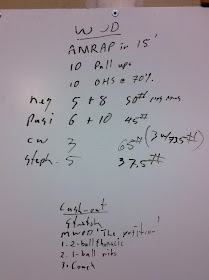 WOD
AMRAP in 15'
10 Pull ups
10 OHS @ 70%
Meg 5 + 8 50#
Pasi 6 + 10 45#
CW 3 65# (3 w/735#)
Steph - 5 37.5#
Cash-out
Stretch
MWOD "The Position"
1. 2-ball thoracic
2. 1-ball ribs
3. Couch